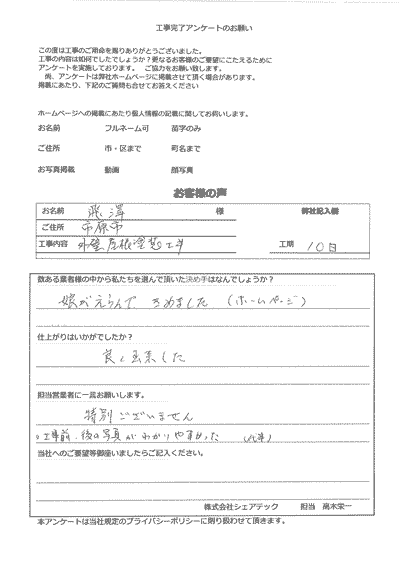 工事完了アンケートのお願い
この度は工事のご用命を賜りありがとうございました。
工事の内容は如何でしたでしょうか？更なるお客様のご要望にこたえるために
アンケートを実施しております。 ご協力をお願い致します。
尚、アンケートは弊社ホームページに掲載させて頂く場合があります。
掲載にあたり、下記のご質問も合せてお答えください
ホームページへの掲載にあたり個人情報の記載に関してお伺いします。
お名前 フルネーム可 苗字のみ
ご住所 市・区まで 町名まで
お写真掲載 動画 顔写真
お客様の声
お名前 飛澤 様 弊社記入欄
ご住所 市原市
工事内容 外壁屋根塗装工事 工期 10日
数ある業者様の中から私たちを選んで頂いた決め手はなんでしょうか？
娘がえらんで きめました （ホームページ）
仕上がりはいかがでしたか？
良く出来した
担当営業者に一言お願いします。
特別ございません
工事前、後の写真がわかりやすかった
当社へのご要望等御座いましたらご記入ください。
株式会社シェアテック 担当 高木栄一
本アンケートは当社規定のプライバシーポリシーに則り扱わせて頂きます。